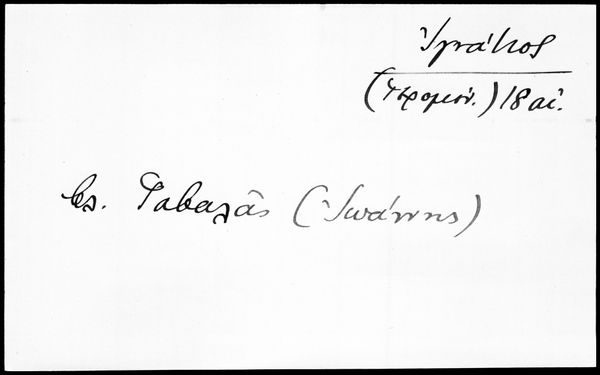 Ἰγνάτιος
(ἱερομον.) 18 αἰ.
βλ. Γαβαλᾶς (Ἰωάννης)